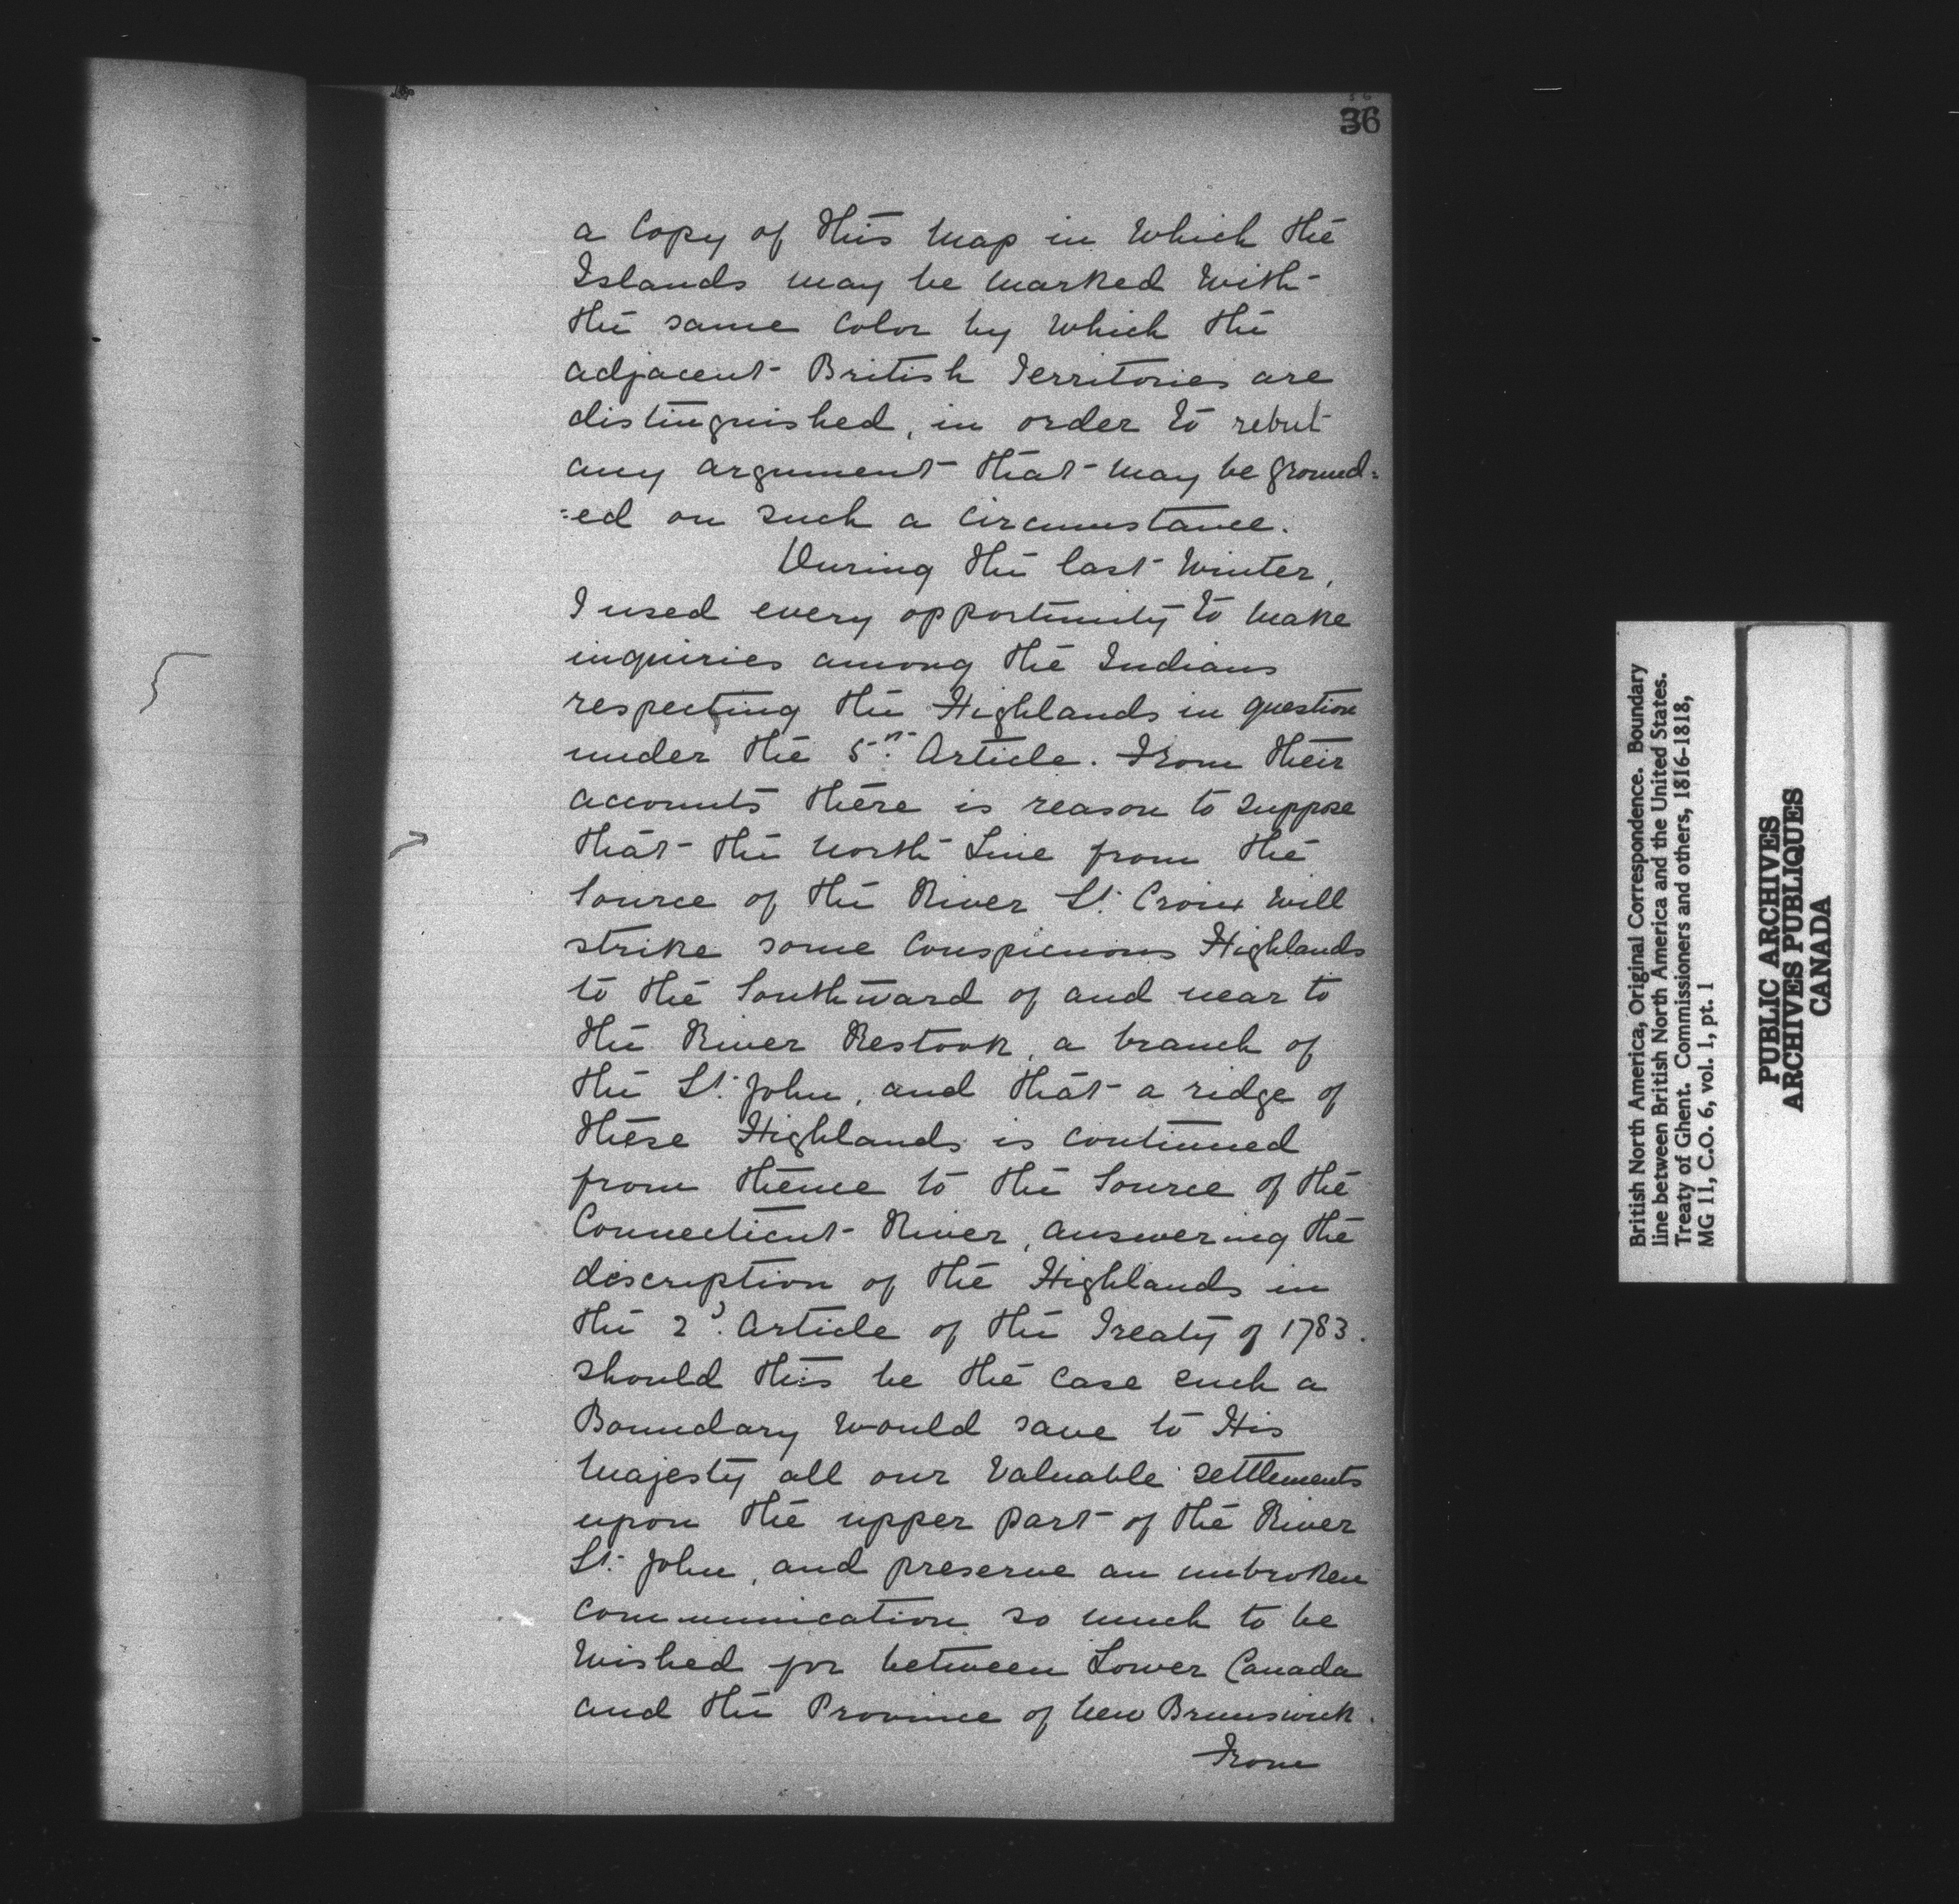 36
a Copy of this Map in which the
Islands may be marked with
the same Color by which the
adjacent British Territories are
distinguished, in order to rebut
any argument that may be ground=
=ed on such a Circumstance.
During the last Winter,
I used every opportunity to make
inquiries among the Indians
respecting the Highlands in question
under the 5th Article. From their
accounts there is reason to suppose
that the North Line from the
Source of the River St. Croix will
strike some Conspicuous Highlands
to the Southward of and near to
the River Restook, a branch of
the St. John, and that a ridge of
these Highlands is continued
from thence to the Source of the
Connecticut River, answering the
description of the Highlands in
the 2d. Article of the Treaty of 1783.
should this be the case such a
Boundary would save to His
Majesty all our Valuable settlements
upon the upper part of the River
St. John, and preserve an unbroken
communication so much to be
Wished for between Lower Canada
and the Province of New Brunswick.
From
British North America, Original Correspondence. Boundary
line between British North America and the United States.
Treaty of Ghent. Commissioners and others, 1816-1818,
MG 11, C.O. 6, vol. 1, pt. 1
PUBLIC ARCHIVES
ARCHIVES PUBLIQUES
CANADA